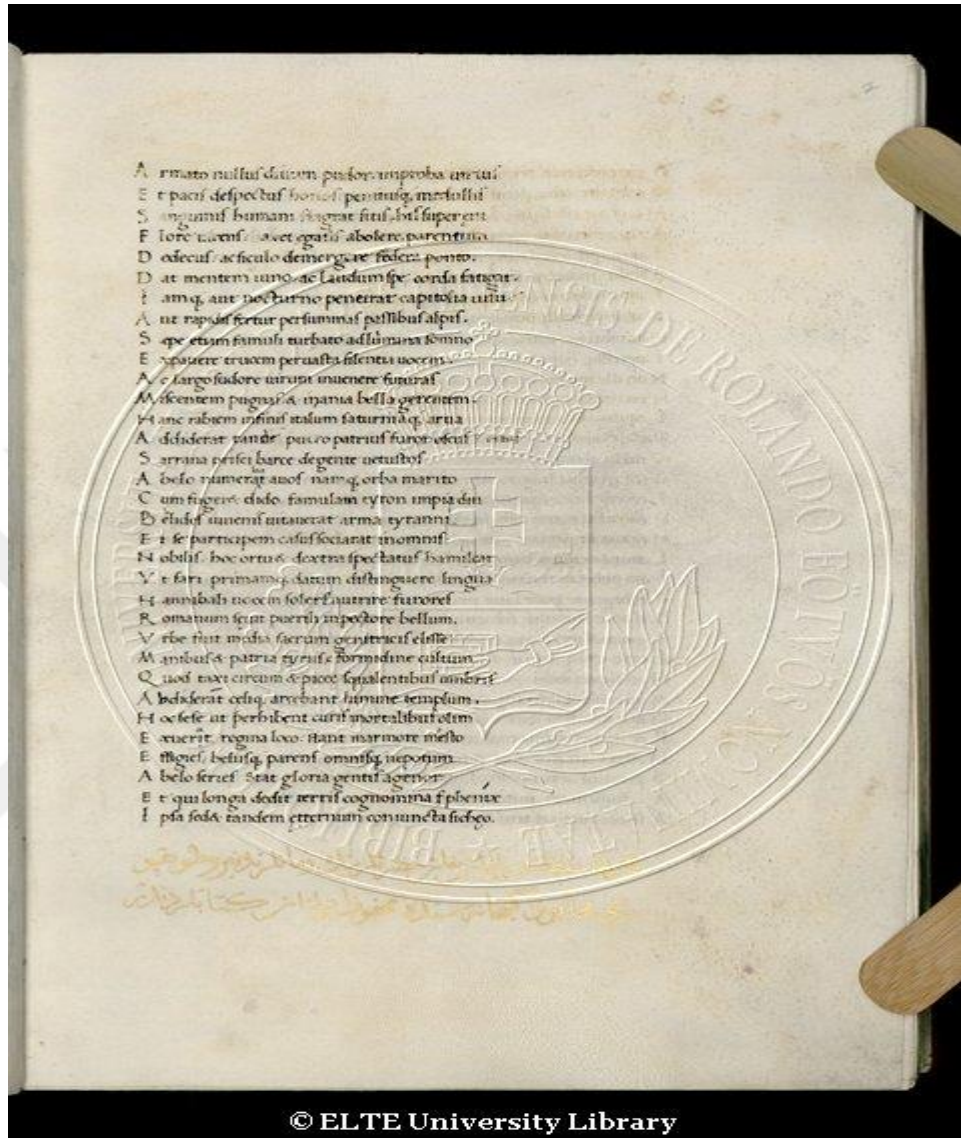 A rmato nullus diuum pudor. improba uirtus
E t pacis despectus honos. penitusq. medullis
S anguinis humani flagrat sitis. his super eui
F lore uirens. auet egatis abolere parentum
D edecus. ac siculo demergere federa ponto.
D at mentem iuno. ac laudum spe corda fatigat.
I amq. aut nocturno penetrat capitolia uisu
A ut rapidis fertur per summas passibus alpis.
S epe etiam famuli turbato ad lumina somno
E xpauere trucem per uasta silentia uocem.
A c largo sudore uirum inuenere futuras
M iscentem pugnas & inania bella gerentem.
H anc rabiem in finis italum saturniaq. arua
A ddiderat puero patrius furor
S arrana prisci barce de gente uetustos
A belo numerat auos namq. orba marito
C um fugeret dido famulam tyron impia diri
B elides iuuenis uitauerat arma tyranni.
E t se participem casus sociarat in omnis.
N obilis hoc ortu & dextra spectatus hamilcar
V t fari primamq. datum distinguere lingua
H annibali uocem solers nutrire furores
R omanum seuit puerili in pectore bellum.
V rbe fuit media sacrum genitricis elisse
M anibus & patria tyriis formidine cultum
Q uod taxi circum & picee squalentibus umbris
A bdiderant celiq. arcebant lumine templum.
H oc sese ut perhibent curis mortalibus olim
E xuerit regina loco. stant marmore mesto
E ffigies. belusq. parens omnisq. nepotum
A belo series. stat gloria gentis agenor
E t qui longa dedit terris cognomina phenix
I psa sedet tandem ęternum coniuncta sicheo.
© ELTE University Library